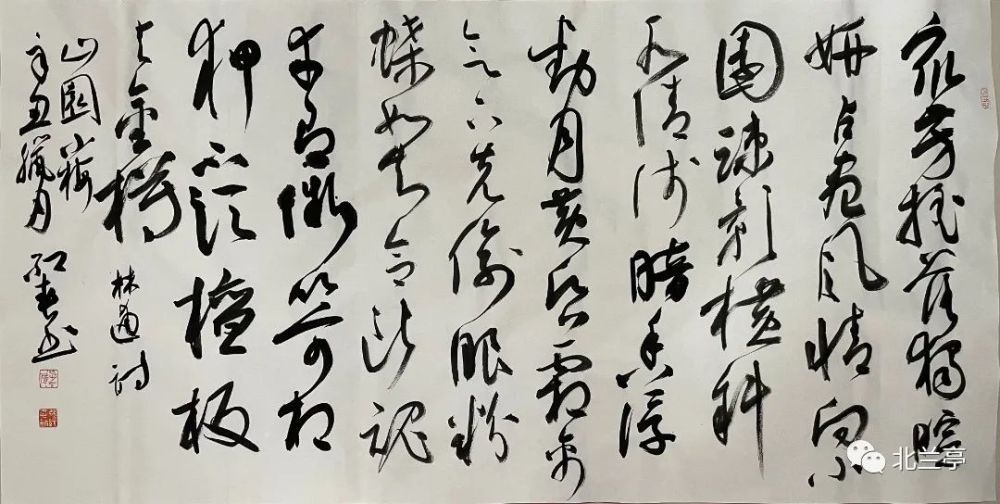 众芳摇落独暄
妍占尽风情向小
園疎影横斜
水清浅暗香浮
動月黄昏霜禽
欲下先偷眼粉
蝶如知合断魂
幸有微吟可相
狎不須檀板
共金樽
林逋詩
山園小梅
辛丑臘月
北兰亭